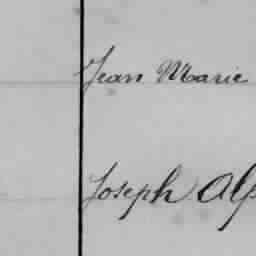 Jean Marie
Joseph Alp